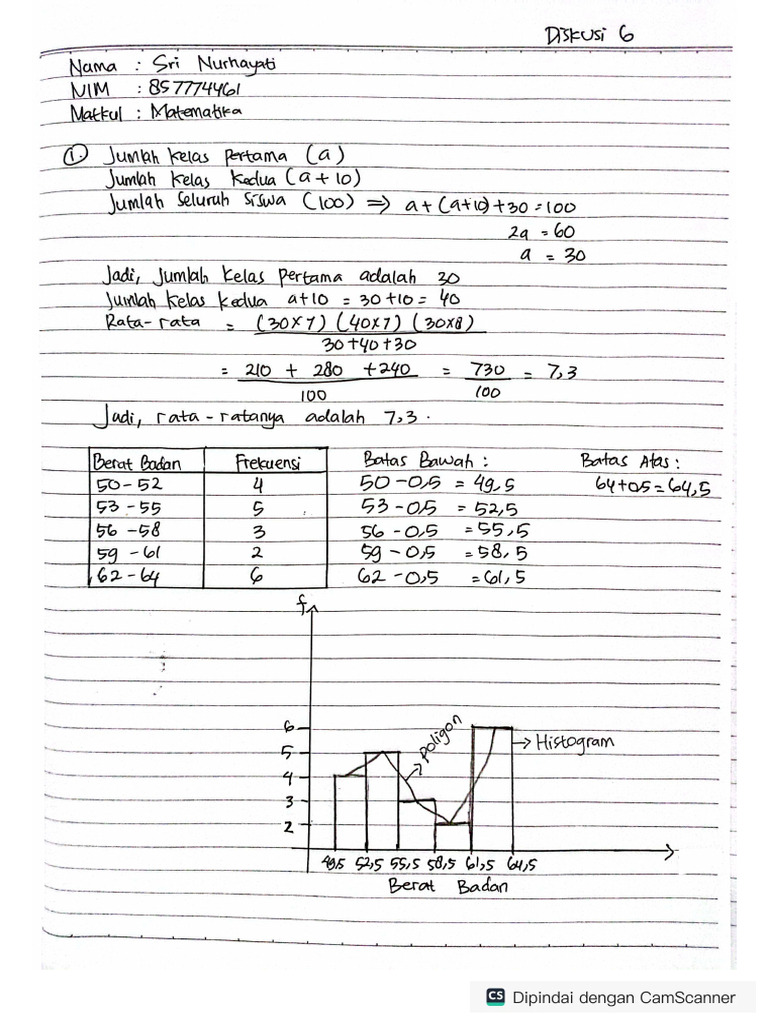 Diskusi 6
Nama : Sri Nurhayati
NIM : 857774461
Matkul : Matematika
1. Jumlah kelas pertama (a)
Jumlah kelas kedua (a + 10)
Jumlah seluruh siswa (100) ⇒ a + (a+10) + 30 = 100
2a = 60
a = 30
Jadi, jumlah kelas pertama adalah 30
Jumlah kelas kedua a+10 = 30+10 = 40
Rata-rata = (30×7) (40×7) (30×8)
30+40+30
= 210 + 280 + 240 = 730 = 7,3
100 100
Jadi, rata-ratanya adalah 7,3.
Berat Badan Frekuensi Batas Bawah : Batas Atas :
50-52 4 50 - 0,5 = 49,5 64+0,5 = 64,5
53-55 5 53 - 0,5 = 52,5
56-58 3 56 - 0,5 = 55,5
59-61 2 59 - 0,5 = 58,5
62-64 6 62 - 0,5 = 61,5
f
6
5
4
3
2
poligon
→ Histogram
49,5 52,5 55,5 58,5 61,5 64,5
Berat Badan
CS Dipindai dengan CamScanner